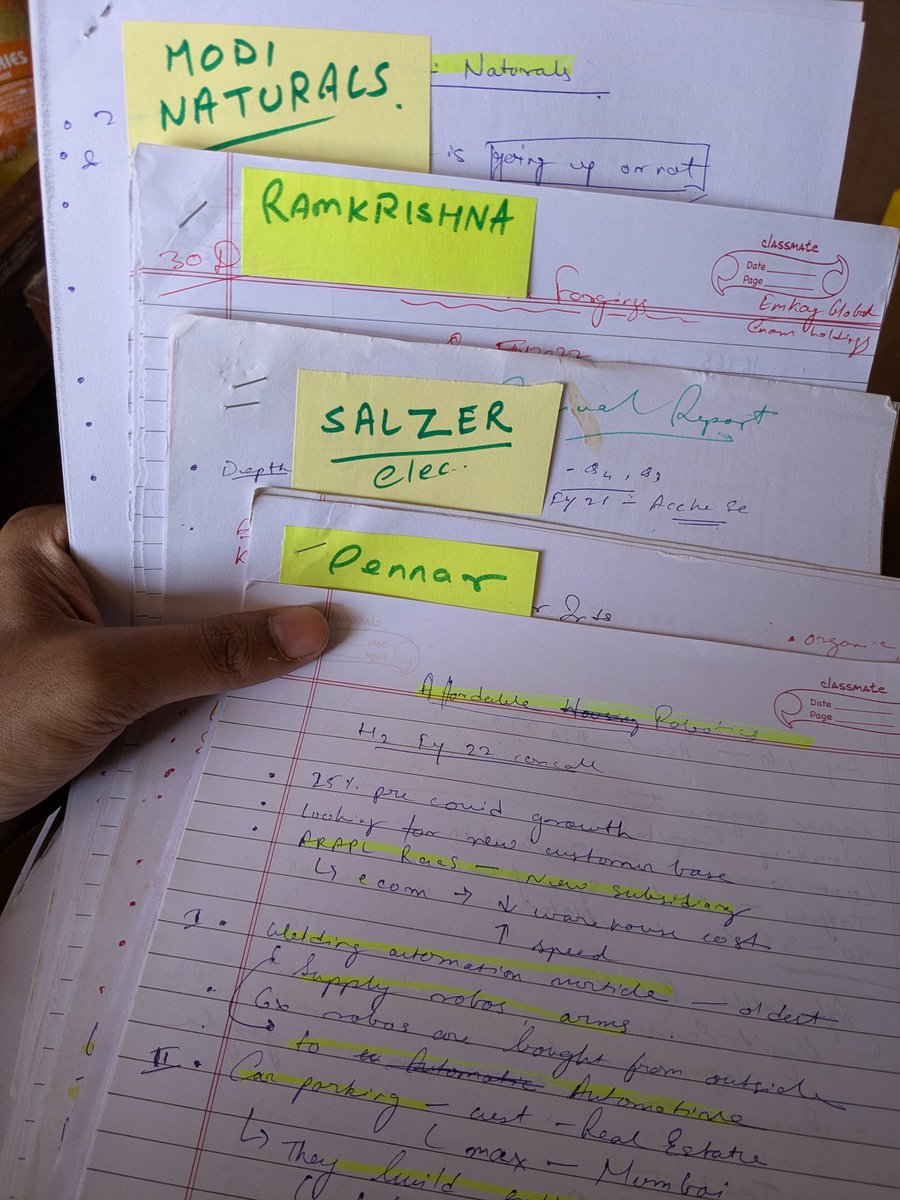 MODI
NATURALS.
Naturals
is going up or not
RAMKRISHNA
classmate
Date
Page
30
Forgings
Emkay Global
Enam holdings
SALZER
elec.
Report
Depth
- Q4, Q3
FY 21 = Acche se
Pennar
organic
classmate
Date
Page
classmate
Date
Page
Affordable Housing Robotics
H2 FY 22 concall
• 25% pre covid growth
• Looking for new customer base
• ARAPL RaaS - New subsidiary
↳ ecom → ↓ warehouse cost
↑ speed
I • Welding automation verticle - oldest
Supply robos, arms
• Gx robos are bought from outside
to Automate Automotive
II • Car parking - cust - Real Estate
↳ max - Mumbai
They build